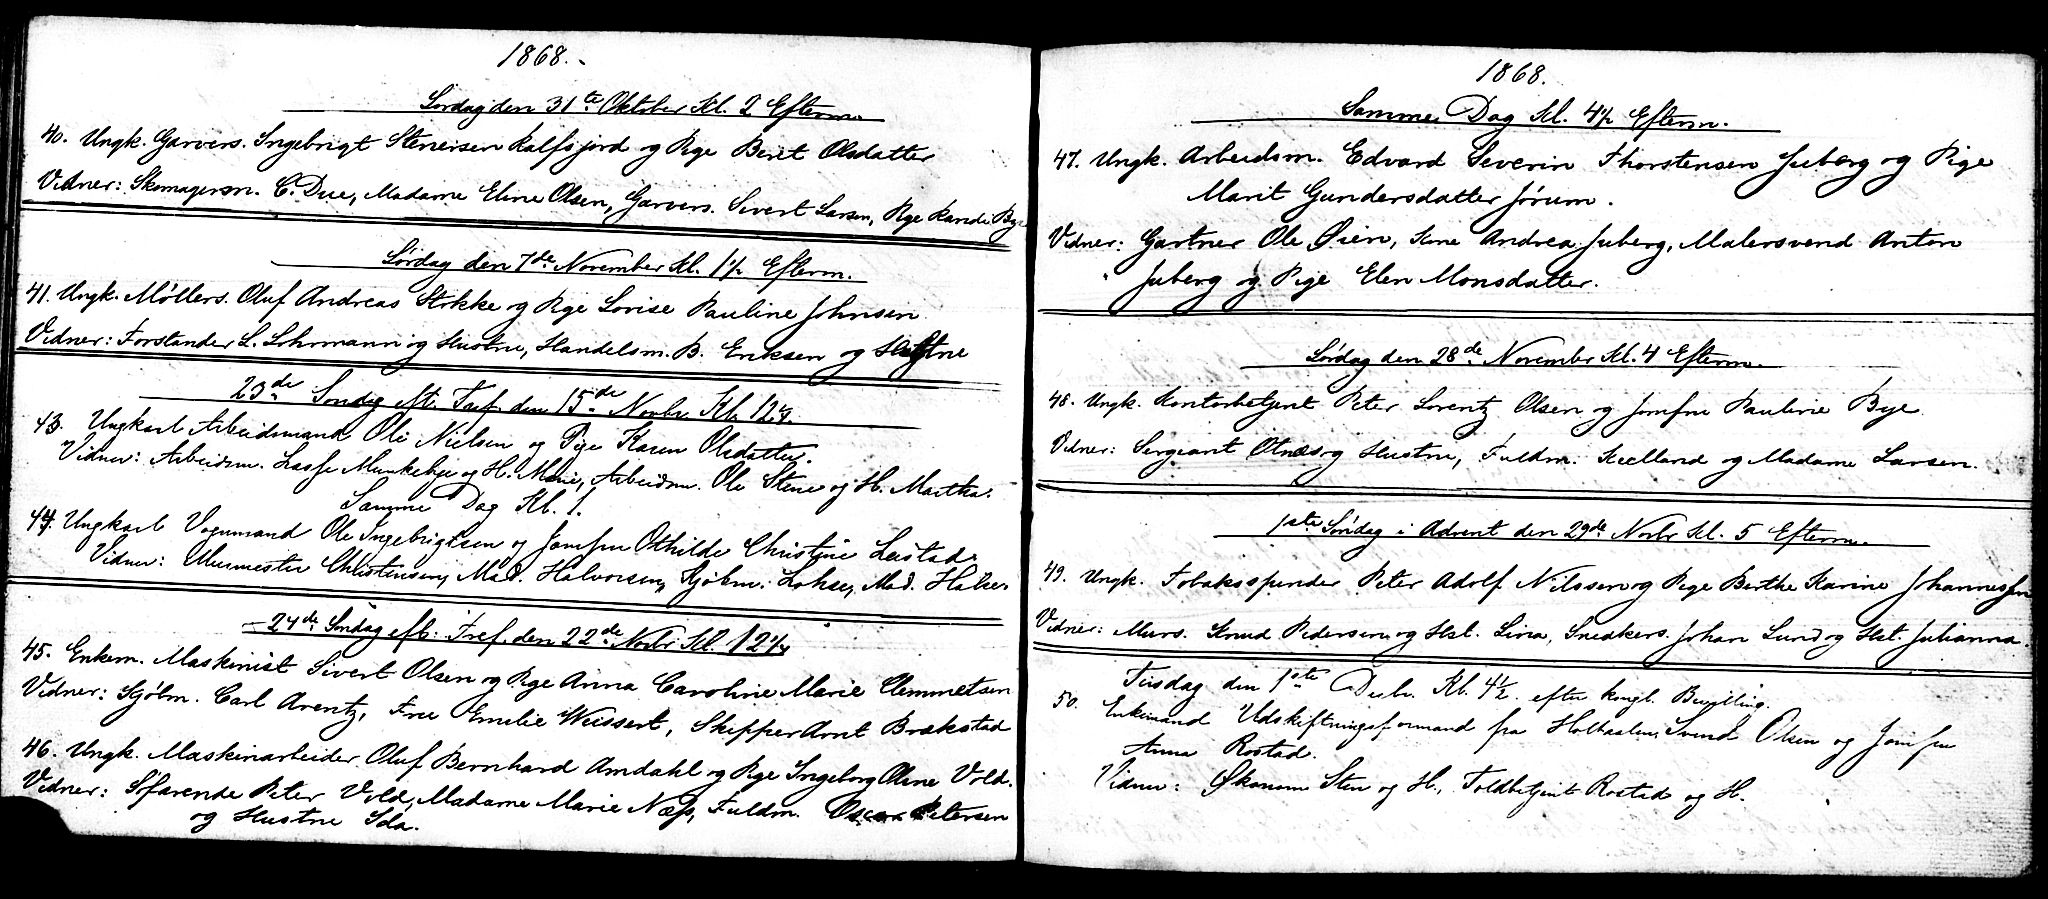 1868.
Lørdag den 31te Oktober Kl. 2 Efterm.
40. Ungk. Garvers. Ingebrigt Stenersen Kalfsjord og Pige Berit Olsdatter
Vidner: Skomagersn. C. Due, Madame Eline Olsen, Garvers. Sivert Larsen, Pige Bye
Lørdag den 7de November Kl. 1½ Efterm.
41. Ungk. Møllers. Oluf Andreas Stokke og Pige Lovise Pauline Johnsen
Vidner: Forstander L. Lohrmann og Hustru, Handelsm. B. Eriksen og Hustrue
23de Søndag eft. Tref. den 15de Novbr Kl. 12½.
43. Ungkarl Arbeidsmand Ole Nielsen og Pige Karen Olsdatter.
Vidner: Arbeidsm. Lasse Munkebye og H. Marie, Arbeidsm. Ole Stene og H. Martha.
Samme Dag Kl. 1.
44. Ungkarl Vognmand Ole Ingebrigtsen og Jomfru Othilde Christine Leistad.
Vidner: Murmester Christensen, Mad. Halvorsen, Kjøbm. Lohse, Mad. Halse.
24de Søndag eft. Tref. den 22de Novbr Kl. 12½
45. Enkem. Maskinist Sivert Olsen og Pige Anna Caroline Marie Clemmetsen
Vidner: Kjøbm. Carl Arentz, Frue Emelie Weissert, Skipper Arnt Brækstad
46. Ungk. Maskinarbeider Oluf Bernhard Amdahl og Pige Ingeborg Oline Vold.
Vidner: Søfarende Peter Vold, Madame Marie Næss, Fuldm. Oscar Petersen
og Hustrue Ida.
1868.
Samme Dag Kl. 4½ Efterm.
47. Ungk. Arbeidsm. Edvard Severin Thorstensen Juberg og Pige
Marit Gundersdatter Jørum.
Vidner: Gartner Ole Øien, Kone Andrea Juberg, Malersvend Anton
Juberg og Pige Elen Monsdatter.
Lørdag den 28de November Kl. 4 Efterm.
48. Ungk. Kontorbetjent Peter Lorentz Olsen og Jomfru Pauline Bye
Vidner: Sergeant Olnæs og Hustru, Fuldm. Kielland og Madame Larsen.
1ste Søndag i Advent den 29de Novbr Kl. 5 Efterm.
49. Ungk. Tobaksspinder Peter Adolf Nilssen og Pige Berthe Karine Johannessen
Vidner: Murs. Knud Pedersen og Hst. Lina, Snedkers. Johan Lund og Hst. Julianna.
Tirsdag den 1ste Decbr. Kl. 4½. efter kongl. Bevilling.
50. Enkemand Udskiftningsformand fra Holtaalen Svend Olsen og Jomfru
Anna Rostad.
Vidner: Økonom Sten og H., Toldbetjent Rostad og H.